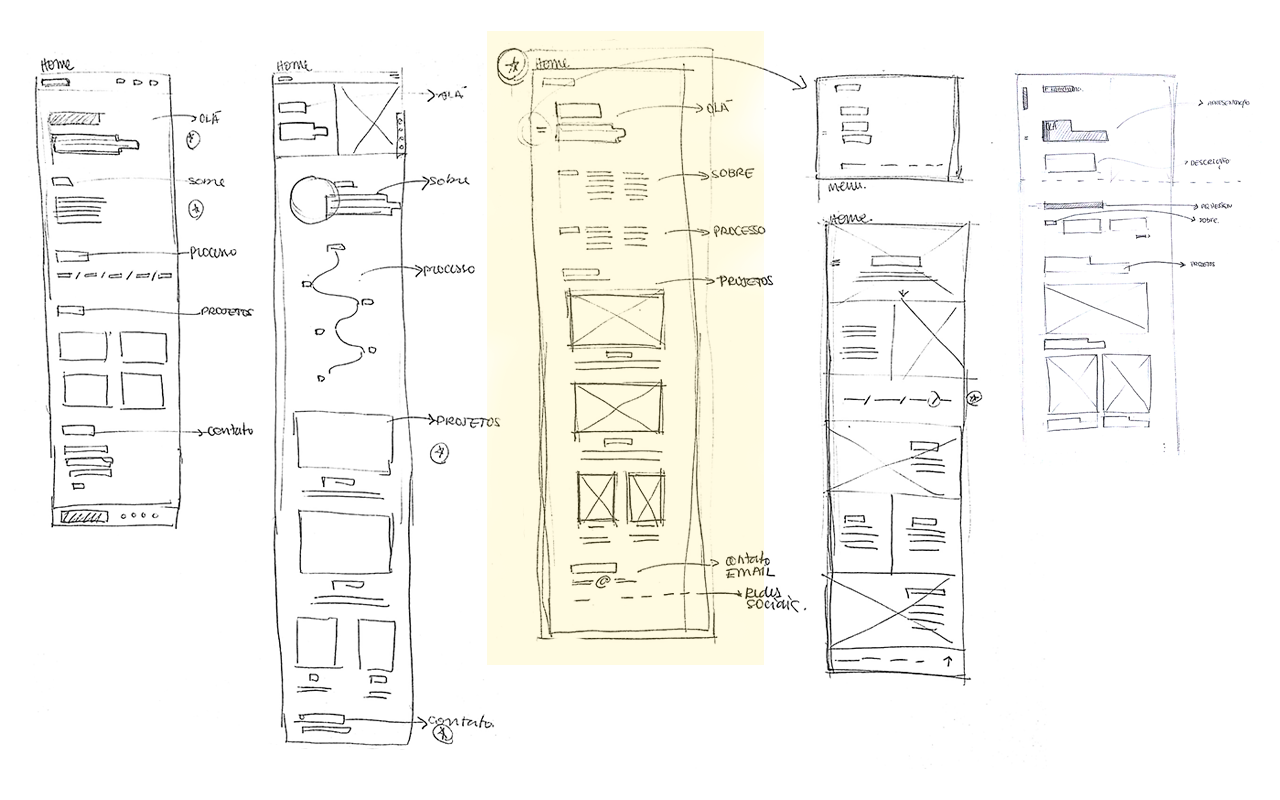 HOME
OLÁ
SOBRE
PROCESSO
PROJETOS
CONTATO
HOME
OLÁ
SOBRE
PROCESSO
PROJETOS
CONTATO.
HOME
OLÁ
SOBRE
PROCESSO
PROJETOS
CONTATO
EMAIL
@
REDES
SOCIAIS.
MENU.
HOME.
DESCRIÇÃO
SOBRE.
PROJETOS